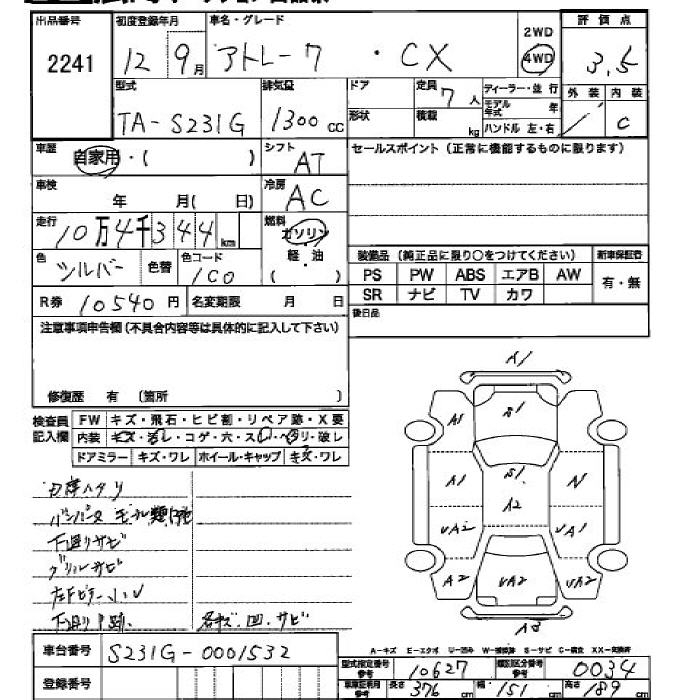 出品番号 初度登録年月 車名・グレード 2WD 評価点
2241 12 9月 アトレー7 ・CX 4WD 3.5
型式 排気量 ドア 定員 7人 ディーラー・並行 外装 内装
TA-S231G 1300cc 形状 積載 kg モデル年式 年 / C
ハンドル 左・右
車歴 自家用・( ) シフト AT セールスポイント(正常に機能するものに限ります)
車検 年 月( 日) 冷房 AC
走行 10万4千344km 燃料 ガソリン
軽・油
( )
色 シルバー 色替 色コード 1C0 装備品(純正品に限り○をつけてください) 新車保証書
PS PW ABS エアB AW 有・無
R券 10540円 名変期限 月 日 SR ナビ TV カワ
注意事項申告欄(不具合内容等は具体的に記入して下さい) 後日品
修復歴 有 (箇所 )
検査員記入欄 FW キズ・飛石・ヒビ割・リペア跡・X要
内装 キズ・汚レ・コゲ・穴・スレ・ヘタリ・破レ
ドアミラー キズ・ワレ ホイール・キャップ キズ・ワレ
A1
A1 A1
A1 S1 A1
A2
UA2 UA1
A2 UA2 UA2
A3
バンパー モール類
下廻りサビ
グリルサビ
下廻り
各キズ、凹、サビ
A-キズ E-エクボ U-凹み W-補修跡 S-サビ C-腐食 XX-交換済
車台番号 S231G-0001532 型式指定番号参考 10627 類別区分番号参考 0034
登録番号 長さ 376cm 幅 151cm 高さ 189cm